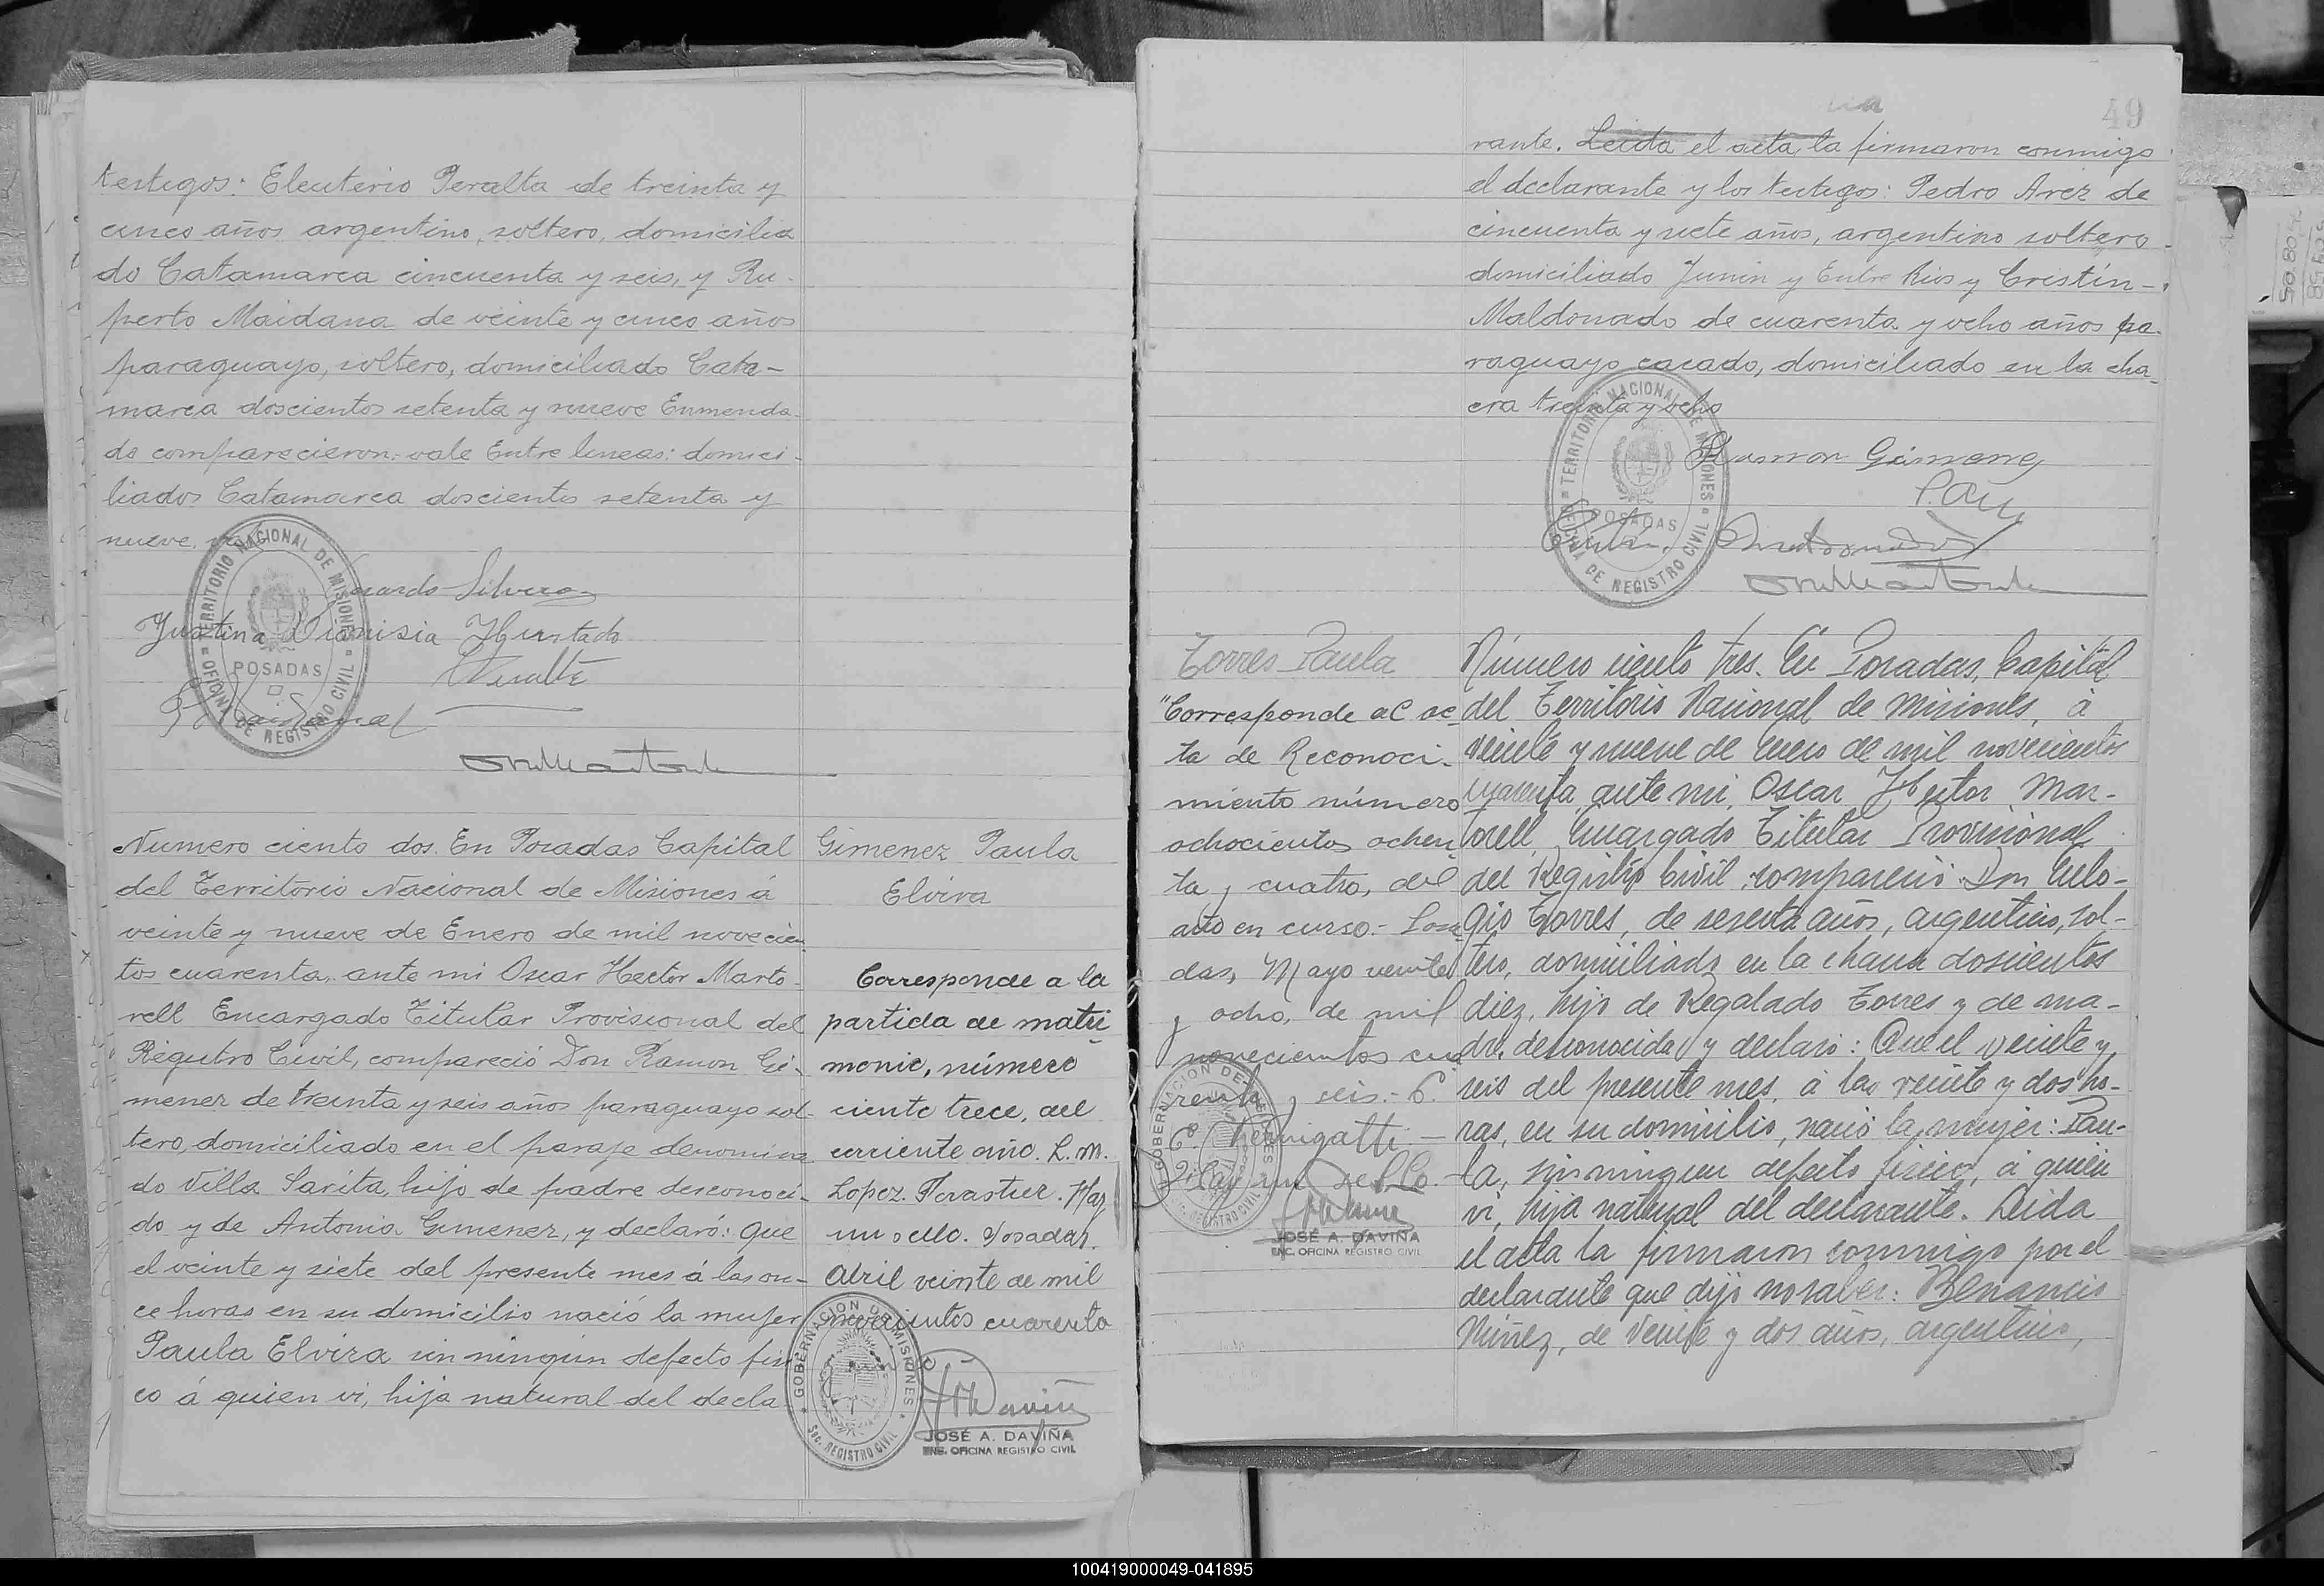 testigos: Eleuterio Peralta de treinta y
cinco años argentino, soltero, domicilia
do Catamarca cincuenta y seis, y Ru-
perto Maidana de veinte y cinco años
paraguayo, soltero, domiciliado Cata-
marca doscientos setenta y nueve Enmenda-
do comparecieron: vale Entre lineas: domici-
liados Catamarca doscientos setenta y
nueve.
Silvero
Justina Dionisia Hurtado
Peralta
R. Maidana
TERRITORIO NACIONAL DE MISIONES
POSADAS
OFICINA DE REGISTRO CIVIL
Numero ciento dos. En Posadas Capital
del Territorio Nacional de Misiones á
veinte y nueve de Enero de mil novecien
tos cuarenta, ante mi Oscar Hector Marto-
rell Encargado Titular Provisional del
Registro Civil, compareció Don Ramon Gi-
menez de treinta y seis años paraguayo sol-
tero, domiciliado en el paraje denomina
do Villa Sarita, hijo de padre desconoci-
do y de Antonia Gimenez, y declaró: que
el veinte y siete del presente mes á las on-
ce horas en su domicilio nació la mujer
Paula Elvira sin ningun defecto fisi
co á quien vi, hija natural del decla-
Gimenez Paula
Elvira
Corresponde a la
partida de matri
monio, número
ciento trece, del
corriente año. L. M.
Lopez. Hay
un sello. Posadas.
Abril veinte de mil
novecientos cuarenta
GOBERNACION DE MISIONES
SEC. REGISTRO CIVIL
JOSÉ A. DAVIÑA
ENC. OFICINA REGISTRO CIVIL
49
rante. Leida el acta, la firmaron conmigo
el declarante y los testigos: Pedro Arez de
cincuenta y siete años, argentino soltero
domiciliado Junin y Entre Rios y Cristin-
Maldonado de cuarenta y ocho años pa-
raguayo casado, domiciliado en la cha-
cra treinta y ocho
Ramon Gimenez
TERRITORIO NACIONAL DE MISIONES
POSADAS
OFICINA DE REGISTRO CIVIL
Torres Paula
"Corresponde al ac-
ta de Reconoci-
miento número
ochocientos ochen
ta y cuatro, del
año en curso.- Posa
das, Mayo veinte
y ocho, de mil
novecientos cua
renta y seis.-
Hay un sello.-
GOBERNACION DE MISIONES
SEC. REGISTRO CIVIL
JOSÉ A. DAVIÑA
ENC. OFICINA REGISTRO CIVIL
Número ciento tres. En Posadas, Capital
del Territorio Nacional de Misiones, á
veinte y nueve de Enero de mil novecientos
cuarenta, ante mi, Oscar Hector Mar-
torell, Encargado Titular Provisional
del Registro Civil, compareció Don Eulo-
gio Torres, de sesenta años, argentino, sol-
tero, domiciliado en la chacra doscientos
diez, hijo de Regalado Torres y de ma-
dre desconocida y declaró: Que el veinte y
seis del presente mes, á las veinte y dos ho-
ras, en su domicilio, nació la mujer: Pau-
la, sin ningun defecto fisico, á quien
vi, hija natural del declarante. Leida
el acta la firmaron conmigo por el
declarante que dijo no saber: Benancio
Nuñez, de veinte y dos años, argentino,
100419000049-041895